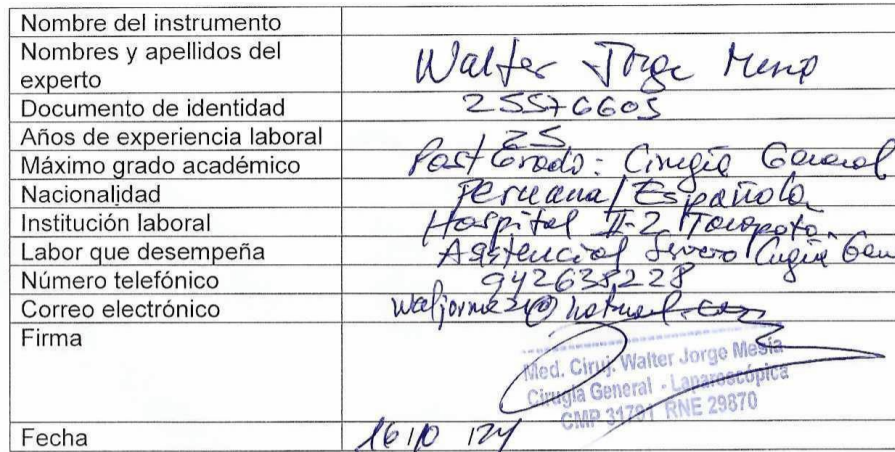 Nombre del instrumento
Nombres y apellidos del experto Walter Jorge
Documento de identidad 25576605
Años de experiencia laboral 25
Máximo grado académico Post Grado: Cirugía General
Nacionalidad Peruana/Española
Institución laboral Hospital II-2 Tarapoto.
Labor que desempeña Asistencial Cirugía Gen
Número telefónico 942638228
Correo electrónico
Firma
Med. Ciruj. Walter Jorge Mesia
Cirugía General - Laparoscópica
CMP 31791 RNE 29870
Fecha 16/10/24